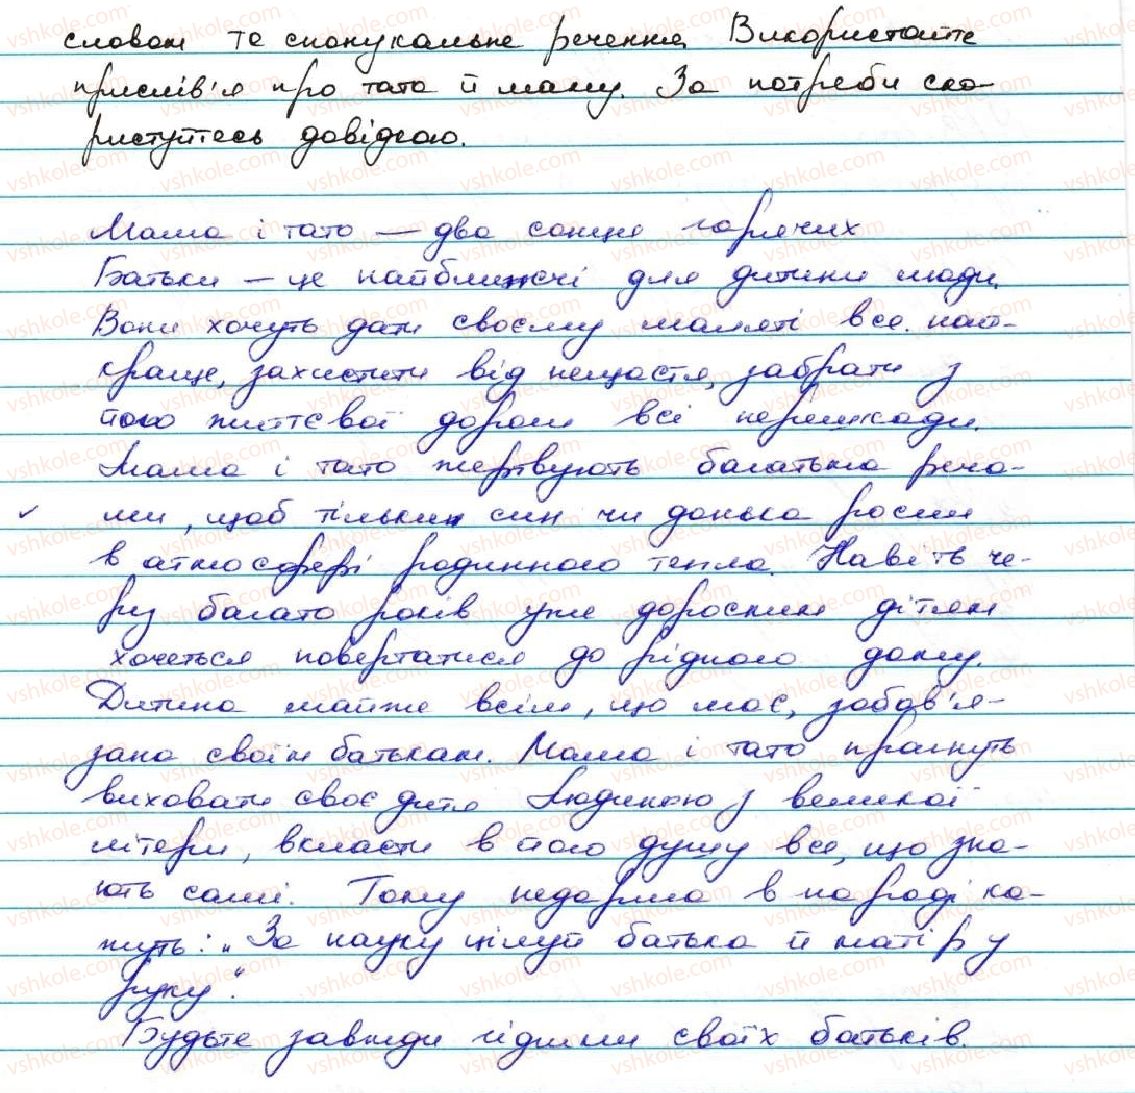 словом те спонукальне речення. Використайте
прислів'я про тата й маму. За потреби ско-
ристуйтесь довідкою.
Мама і тато — два сонця гарячих
Батьки — це найближчі для дитини люди.
Вони хочуть дати своєму маляті все най-
краще, захистити від нещастя, забрати з
його життєвої дороги всі перешкоди.
Мама і тато жертвують багатьма реча-
ми, щоб тільки син чи донька росли
в атмосфері родинного тепла. Навіть че-
рез багато років уже дорослим дітям
хочеться повертатися до рідного дому.
Дитина майже всім, що має, зобов'я-
зана своїм батькам. Мама і тато прагнуть
виховати своє дитя Людиною з великої
літери, вкласти в його душу все, що зна-
ють самі. Тому недарма в народі ка-
жуть: „За науку цілуй батька й матір у
руку".
Будьте завжди гідними своїх батьків.